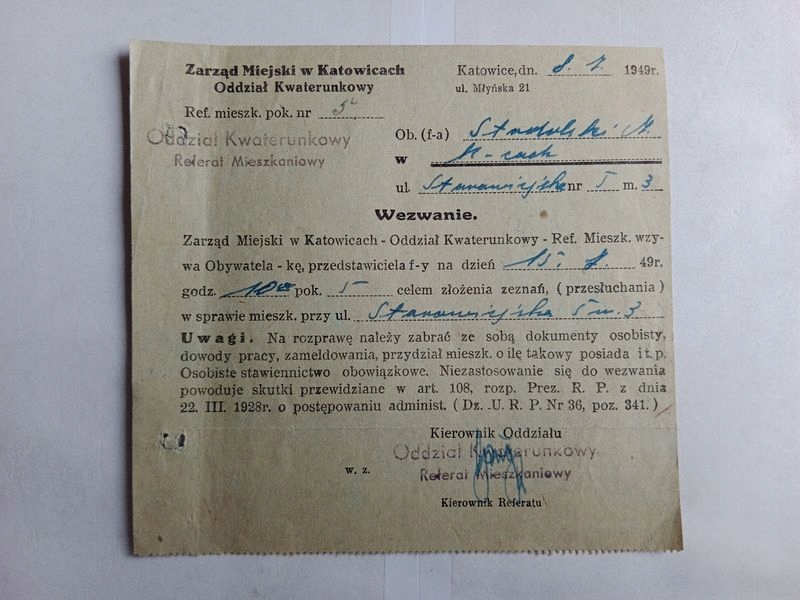 Zarząd Miejski w Katowicach
Oddział Kwaterunkowy
Katowice, dn. 8. 7. 1949r.
ul. Młyńska 21
Ref. mieszk. pok. nr 5
Oddział Kwaterunkowy
Referat Mieszkaniowy
Ob. (f-a) Stodolski
w K-cach
ul. Starowiejska nr 5 m. 3
Wezwanie.
Zarząd Miejski w Katowicach - Oddział Kwaterunkowy - Ref. Mieszk. wzy-
wa Obywatela - kę, przedstawiciela f-y na dzień 15. 7. 49r.
godz. 10 00 pok. 5 celem złożenia zeznań, ( przesłuchania )
w sprawie mieszk. przy ul. Starowiejska 5 m. 3
Uwagi. Na rozprawę należy zabrać ze sobą dokumenty osobisty,
dowody pracy, zameldowania, przydział mieszk. o ilę takowy posiada i t. p.
Osobiste stawiennictwo obowiązkowe. Niezastosowanie się do wezwania
powoduje skutki przewidziane w art. 108, rozp. Prez. R. P. z dnia
22. III. 1928r. o postępowaniu administ. ( Dz. U. R. P. Nr 36, poz. 341. )
Kierownik Oddziału
Oddział Kwaterunkowy
w. z.
Referat Mieszkaniowy
Kierownik Referatu